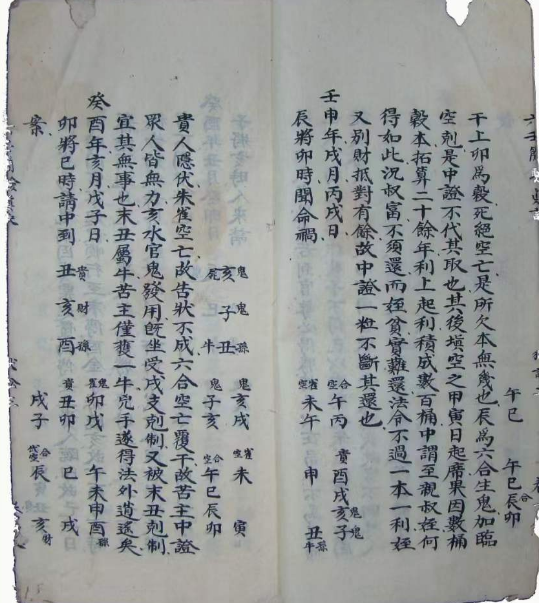 干上卯為穀死絕空亡是所欠本無幾也辰為六合生鬼加臨
空剋是中證不代其取也其後填空之甲寅日起席果因數桶
穀本拓算二十餘年利上起利積成數百桶中謂至親叔姪何
得如此況叔富不須還而姪貧實難還法令不過一本一利姪
又別財抵對有餘故中證一粒不斷其還也
午巳
午巳辰卯
合
壬申年戌月丙戌日
辰將卯時聞命禍
鬼 鬼 孫
亥 子 丑
虎 牛
合空 午丙
雀空 未午
貴 酉戌
申
鬼 鬼
亥子
孫
丑
牛
貴人隱伏朱雀空亡故告狀不成六合空亡覆干故苦主中證
眾人皆無力亥水官鬼發用既坐受戌支剋制又被末丑剋制
宜其無事也末丑屬牛苦主僅獲一牛兇手遂得法外逍遙矣
鬼 亥戌
鬼 子亥
雀空 未
合空 午巳辰卯
寅
癸酉年亥月戊子日
卯將巳時請中到
貴 財 孫
丑 亥 酉
貴 丑卯
雀鬼 卯戌
巳
午未申酉
孫
戌
案
戌子
合 辰
亥
財